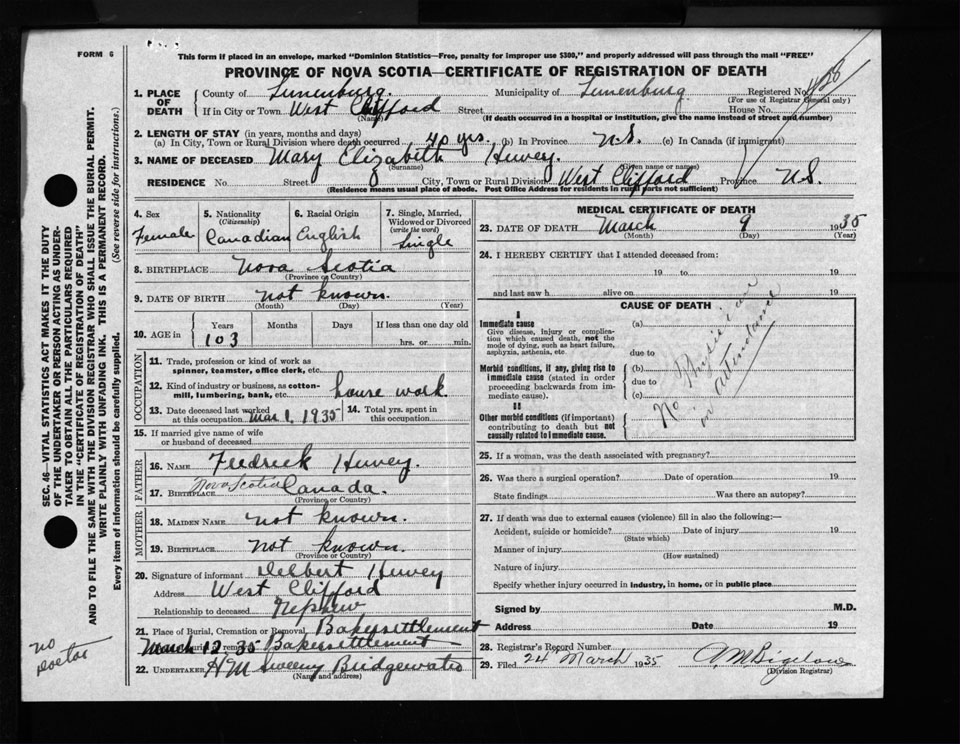 FORM 6
This form if placed in an envelope, marked "Dominion Statistics—Free, penalty for improper use $300," and properly addressed will pass through the mail "FREE"
PROVINCE OF NOVA SCOTIA—CERTIFICATE OF REGISTRATION OF DEATH
1. PLACE OF DEATH
County of Lunenburg. Municipality of Lunenburg Registered No. 428
(For use of Registrar General only)
If in City or Town West Clifford Street House No.
(Name) (If death occurred in a hospital or institution, give the name instead of street and number)
2. LENGTH OF STAY (in years, months and days)
(a) In City, Town or Rural Division where death occurred 40 yrs. (b) In Province N.S. (c) In Canada (if immigrant)
3. NAME OF DECEASED Mary Elizabeth Huvey.
(Surname) (Given name or names)
RESIDENCE No. Street City, Town or Rural Division West Clifford Province N.S.
(Residence means usual place of abode. Post Office Address for residents in rural parts not sufficient)
4. Sex
Female
5. Nationality
(Citizenship)
Canadian
6. Racial Origin
English
7. Single, Married, Widowed or Divorced
(write the word)
Single
8. BIRTHPLACE Nova Scotia
(Province or Country)
9. DATE OF BIRTH not known.
(Month) (Day) (Year)
10. AGE in
Years Months Days If less than one day old
103 hrs. or min.
OCCUPATION
11. Trade, profession or kind of work as spinner, teamster, office clerk, etc.
12. Kind of industry or business, as cotton-mill, lumbering, bank, etc. house work
13. Date deceased last worked at this occupation Mar 1, 1935 14. Total yrs. spent in this occupation
15. If married give name of wife or husband of deceased
FATHER
16. NAME Fredrick Huvey.
17. BIRTHPLACE Nova Scotia Canada.
(Province or Country)
MOTHER
18. MAIDEN NAME not known.
19. BIRTHPLACE not known.
(Province or Country)
20. Signature of informant Delbert Huvey
Address West Clifford
Relationship to deceased Nephew
21. Place of Burial, Cremation or Removal Bakersettlement
March 12, 35 Bakersettlement
22. UNDERTAKER H M Sweeny Bridgewater
(Name and address)
MEDICAL CERTIFICATE OF DEATH
23. DATE OF DEATH March 9 1935
(Month) (Day) (Year)
24. I HEREBY CERTIFY that I attended deceased from:
19 to 19
and last saw h alive on 19
CAUSE OF DEATH
I
Immediate cause (a)
Give disease, injury or complication which caused death, not the mode of dying, such as heart failure, asphyxia, asthenia, etc.
due to
Morbid conditions, if any, giving rise to immediate cause (stated in order proceeding backwards from immediate cause).
(b)
due to
(c)
II
Other morbid conditions (if important) contributing to death but not causally related to immediate cause.
No Physician
in attendance
25. If a woman, was the death associated with pregnancy?
26. Was there a surgical operation? Date of operation 19
State findings Was there an autopsy?
27. If death was due to external causes (violence) fill in also the following:—
Accident, suicide or homicide? Date of injury 19
(State which)
Manner of injury
(How sustained)
Nature of injury
Specify whether injury occurred in industry, in home, or in public place
Signed by M.D.
Address Date 19
28. Registrar's Record Number
29. Filed 24 March 1935 A M Bigelow
(Division Registrar)
SEC. 46—VITAL STATISTICS ACT MAKES IT THE DUTY
OF THE UNDERTAKER OR PERSON ACTING AS UNDER-
TAKER TO OBTAIN ALL THE PARTICULARS REQUIRED
IN THE "CERTIFICATE OF REGISTRATION OF DEATH"
AND TO FILE THE SAME WITH THE DIVISION REGISTRAR WHO SHALL ISSUE THE BURIAL PERMIT.
WRITE PLAINLY WITH UNFADING INK. THIS IS A PERMANENT RECORD.
Every item of information should be carefully supplied. (See reverse side for instructions.)
no
doctor